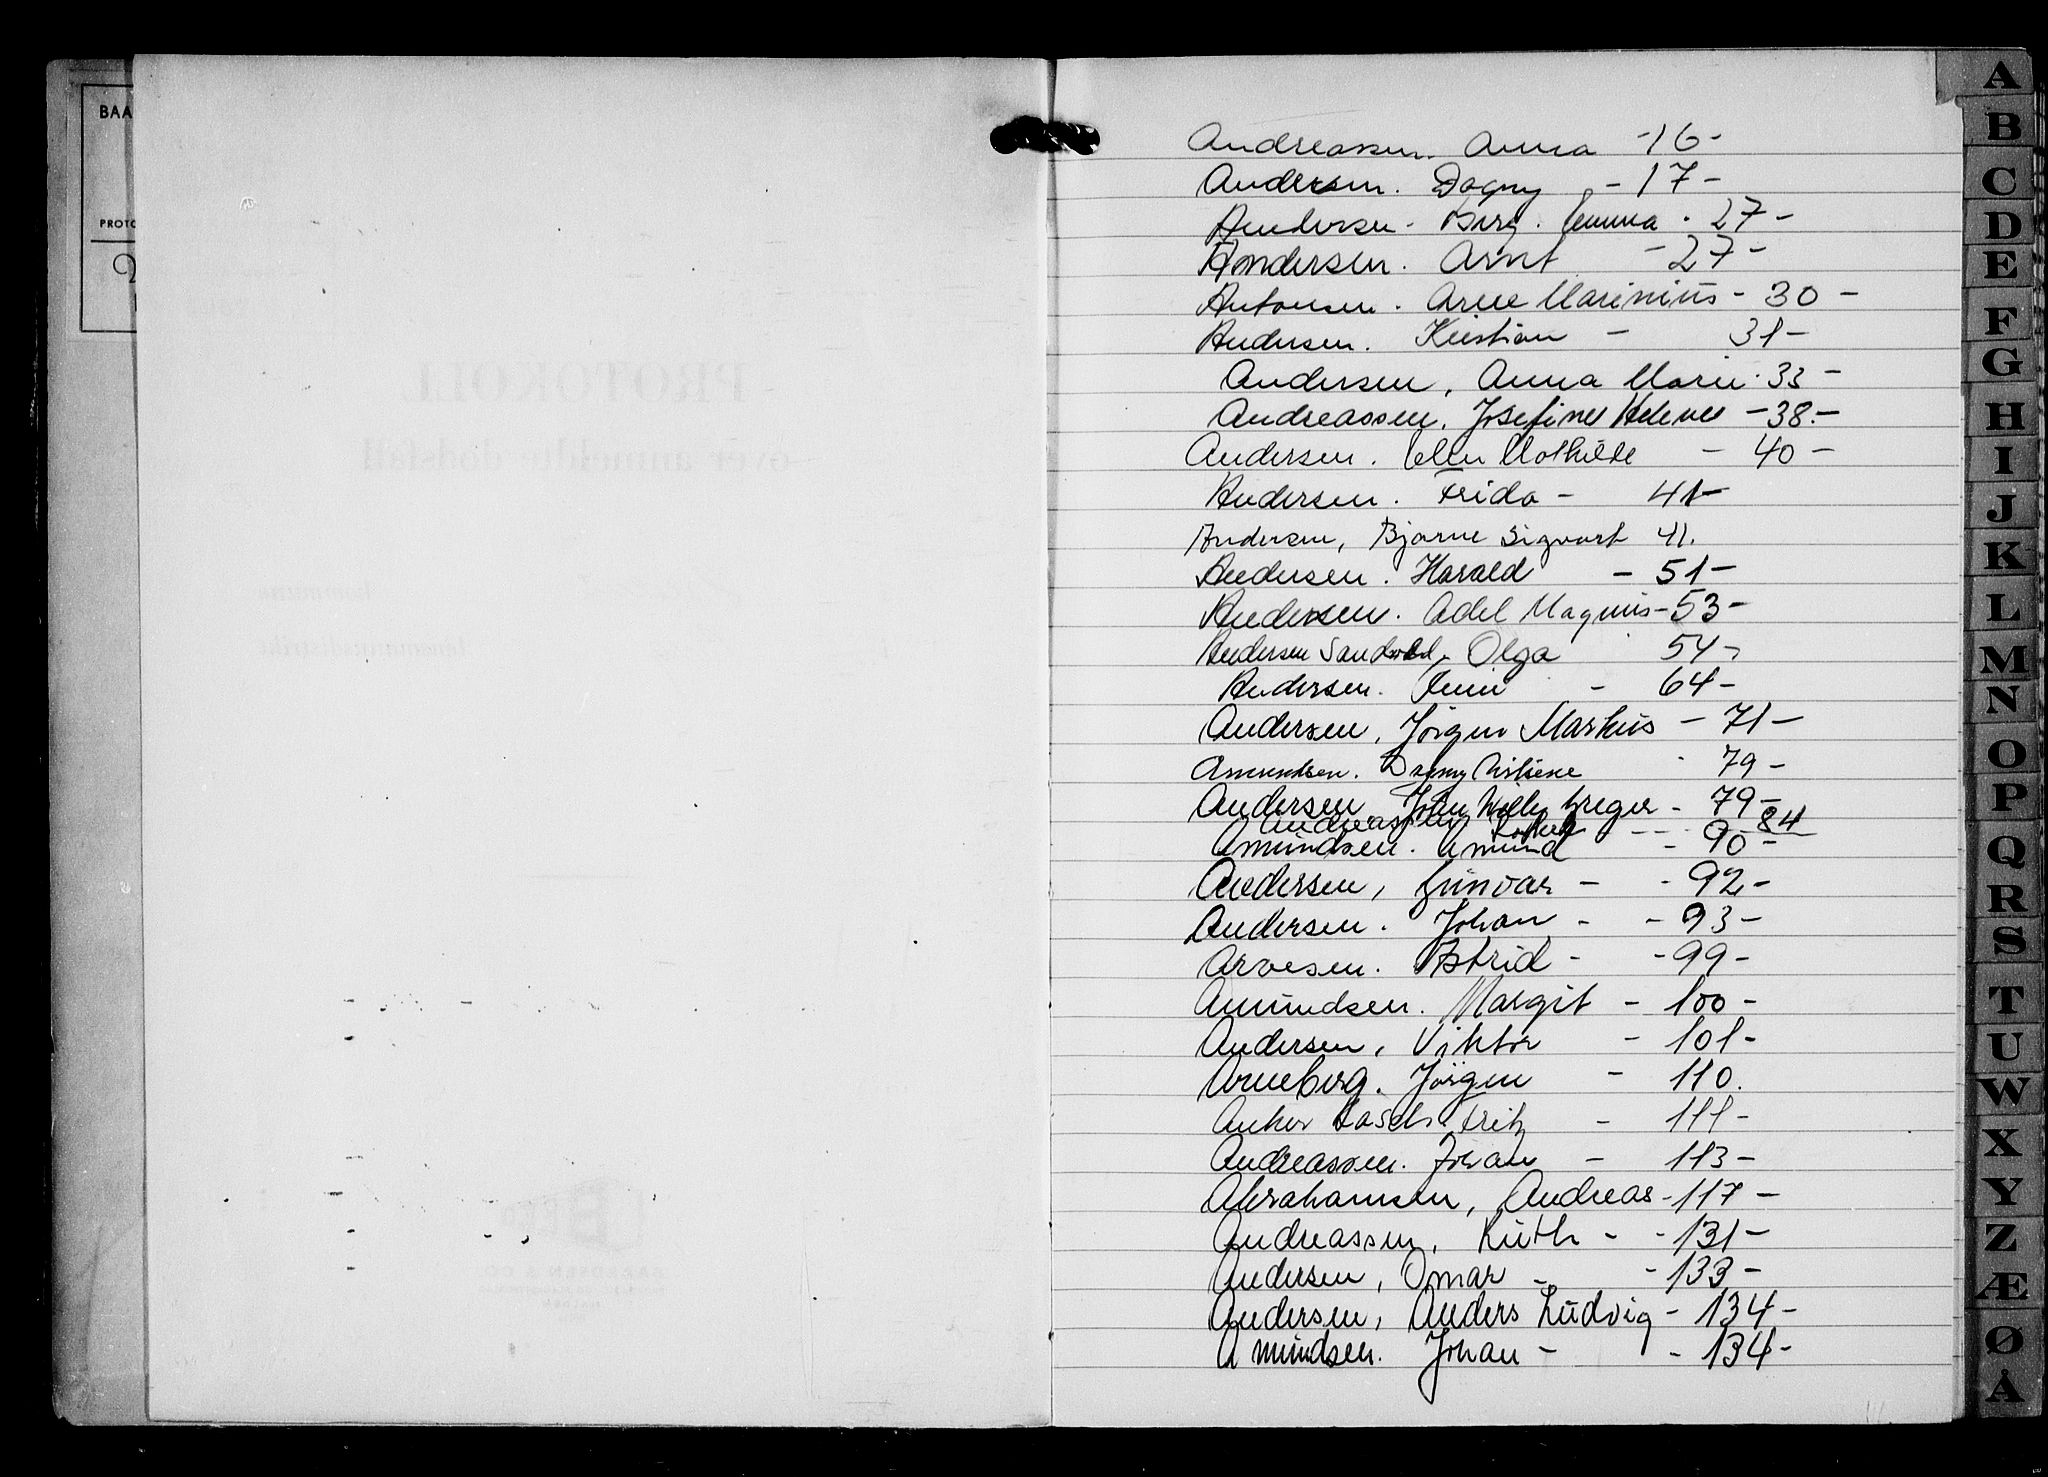 BAA
PROTO
PROTOKOLL
over anmeldte dødsfall
kommune
lensmannsdistrikt
Andreassen. Anna -16-
Andersen. Dagny -17-
Andersen - Berg. Emma - 27-
Andersen. Arnt -27-
Antonsen. Arne Marinius - 30 -
Andersen. Kristian - 31-
Andersen, Anna Marie - 33 -
Andreassen, Josefine Helene -38.-
Andersen. Ellen Mathilde - 40 -
Andersen. Frida - 41-
Andersen, Bjarne Sigvart 41.
Andersen. Harald - 51-
Andersen. Adel Magnus -53-
Andersen Sandvold, Olga 54-
Andersen. - 64-
Andersen, Jörgen Markus - 71-
Amundsen. Dagny 79 -
Andersen, John Willy Greger - 79-
Andreassen - - 84
Amundsen. Amund - 90-
Andersen, Gunvar - - 92-
Andersen. Johan - - 93-
Arvesen. Astrid - -99-
Amundsen. Margit - 100-
Andersen, Viktor - 101-
Arneberg. Jörgen - 110.
Anker Fritz - 111-
Andreassen. Johan - 113-
Abrahamsen, Andreas -117-
Andreassen, Ruth - -131-
Andersen, Omar - -133-
Andersen, Anders Ludvig - 134-
Amundsen. Johan - - 134-
A
B
C
D
E
F
G
H
I
J
K
L
M
N
O
P
Q
R
S
T
U
W
X
Y
Z
Æ
Ø
Å